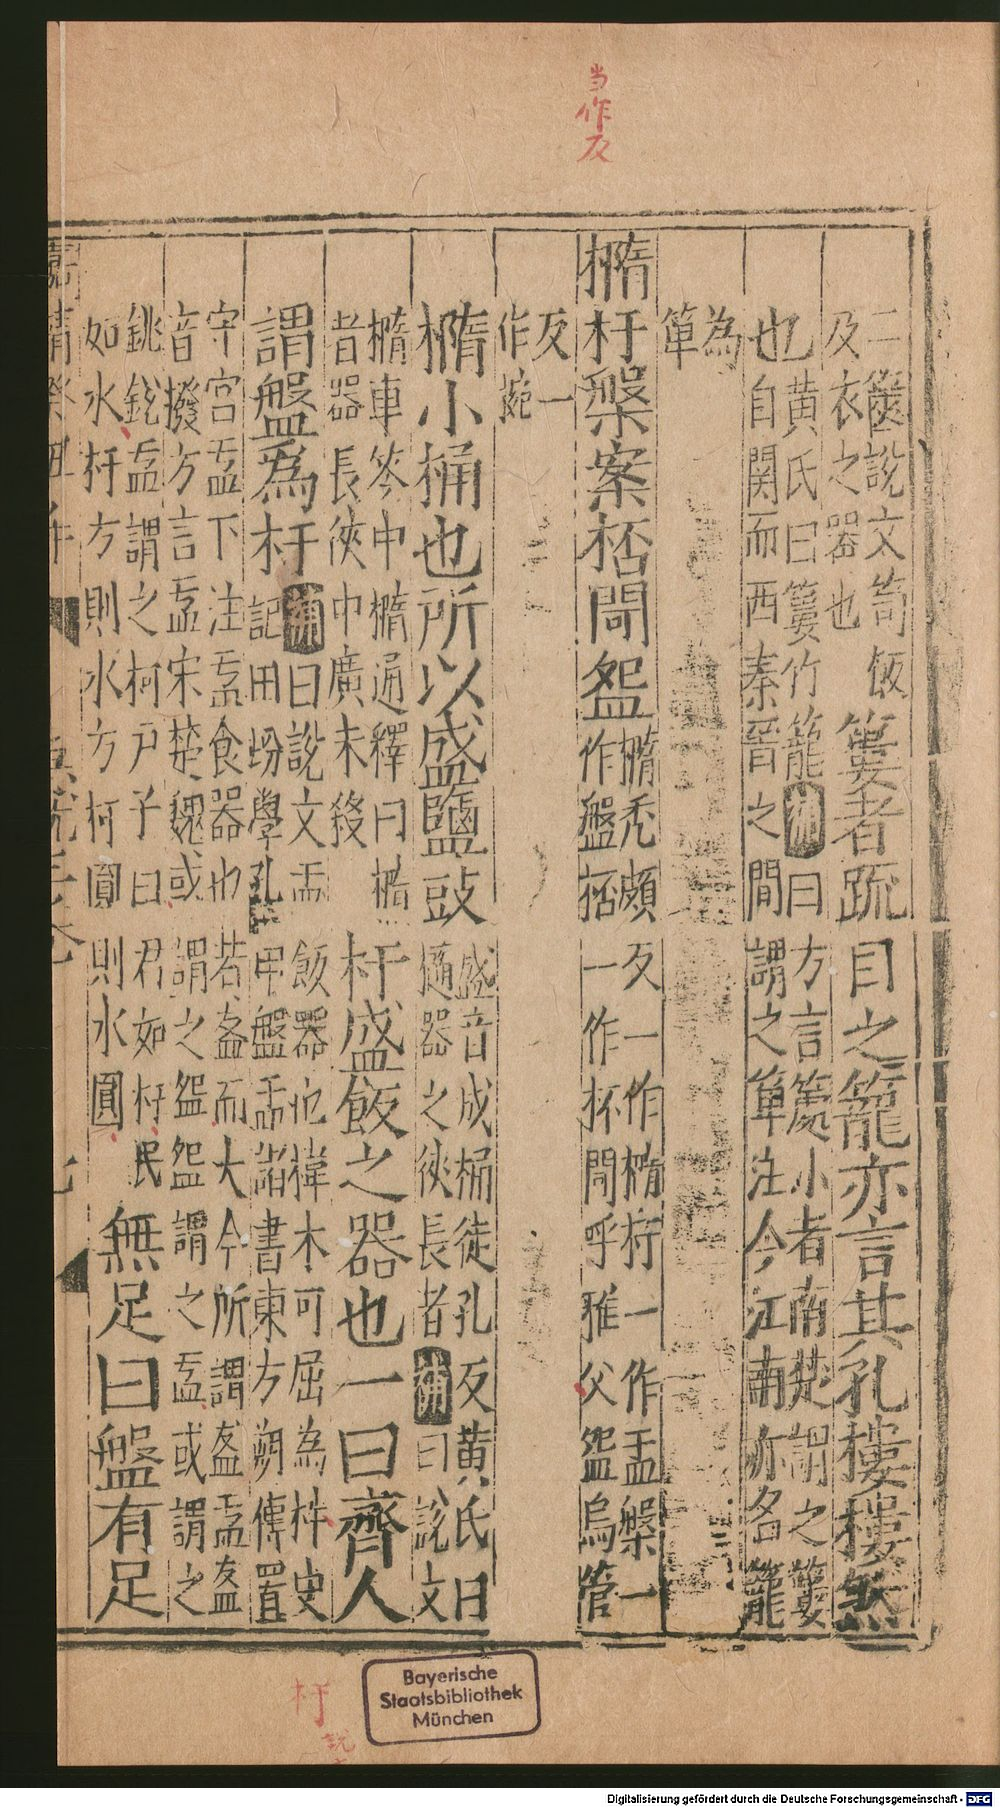 当作反
二篋說文笥飯
及衣之器也
簍者疏目之籠亦言其孔樓樓然
也
黄氏曰簍竹籠補曰方言簍小者南楚謂之簍
自関而西秦晉之間謂之箄注今江南亦名籠
為
箄
橢杅槃案桮閜盌
橢禿頗反一作椭杅一作盂槃一
作盤桮一作杯閜呼雅父盌烏管
反一
作椀
橢小桶也所以盛鹽豉
盛音成桶徒孔反黄氏曰
橢器之狹長者補曰說文
橢車笭中橢通釋曰橢
者器長狹中廣末殺
杅盛飯之器也一曰齊人
謂盤為杅
補曰說文盂飯器也褘木可屈為杅史
記田蚡學孔甲盤盂諸書東方朔傳置
守宮盂下注盂食器也若盋而大今所謂盋盂盋
音撥方言盂宋楚魏或謂之盌盌謂之盂或謂之
銚銳盂謂之柯尸子曰君如杅民
如水杅方則水方杅圓則水圓
無足曰盤有足
杅
Bayerische
Staatsbibliothek
München
Digitalisierung gefördert durch die Deutsche Forschungsgemeinschaft - DFG